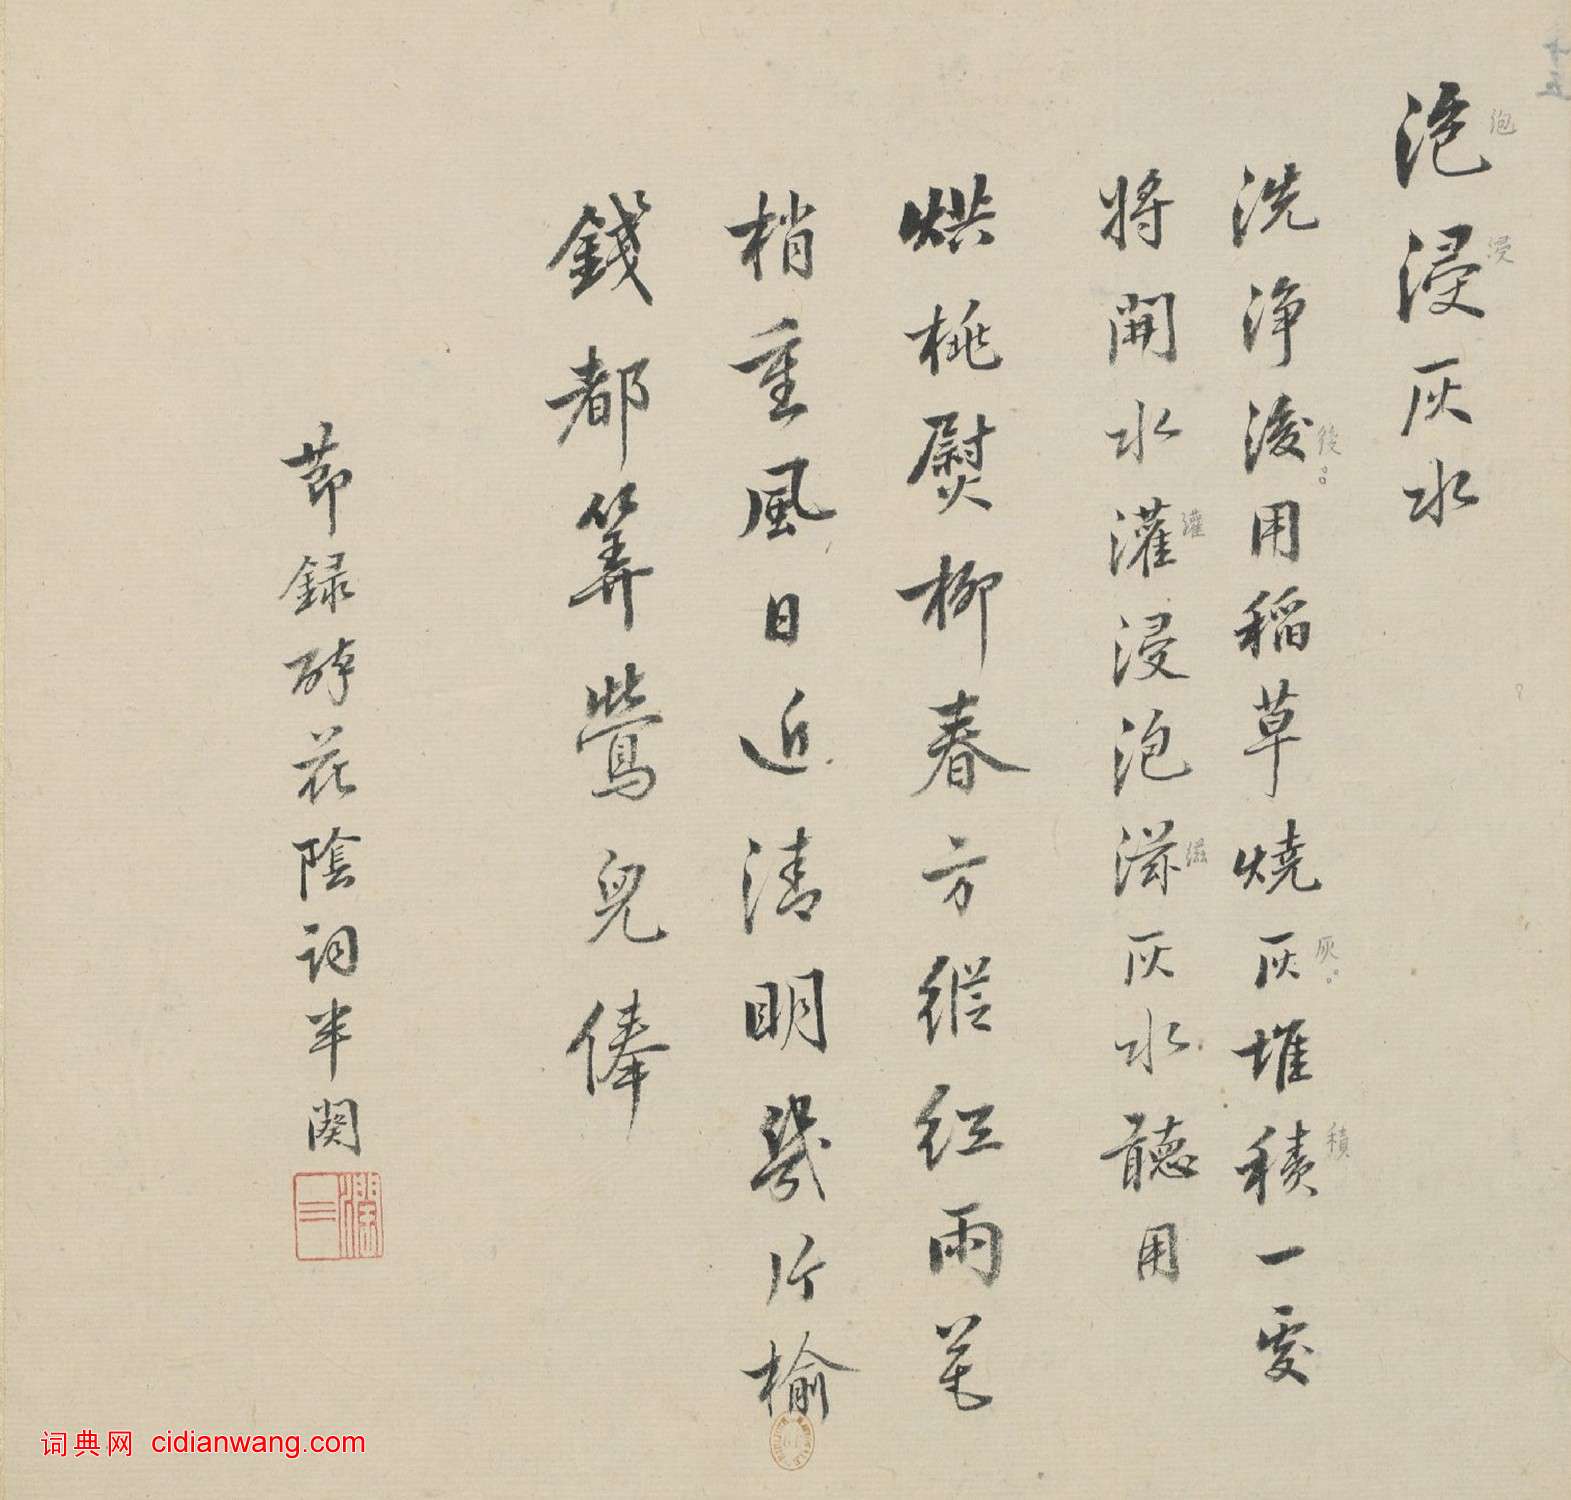 十五
泡浸灰水
洗淨後用稻草燒灰堆積一處
將開水灌浸泡滋灰水聽用
烘桃熨柳春方縱紅雨花
梢重風日近清明幾片榆
錢都算鶯兒俸
節録醉花陰詞半闋
词典网 cidianwang.com